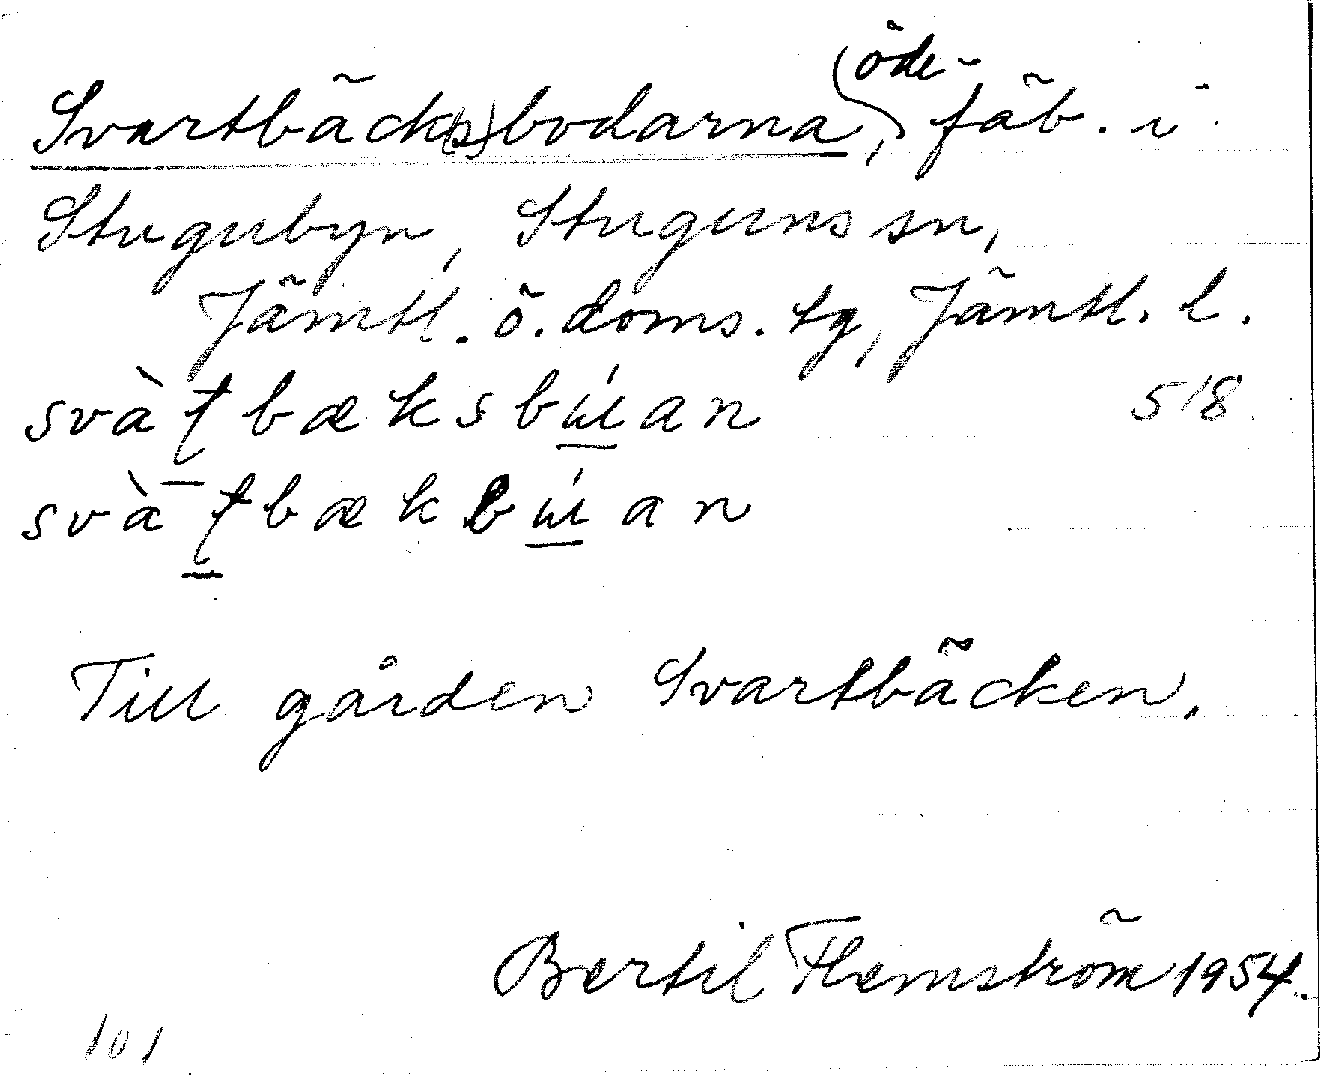 Svartbäck(s)bodarna, öde-fäb. i
Stugubyn, Stuguns sn,
Jämtl. ö. doms. tg, Jämtl. l.
svàƭbæksbɯ́an 518
svàƭbækbɯ́an
Till gården Svartbäcken.
Bertil Flemström 1954.
101